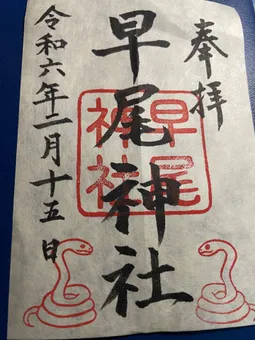 奉拝
早尾神社
早尾神社
令和六年二月十五日